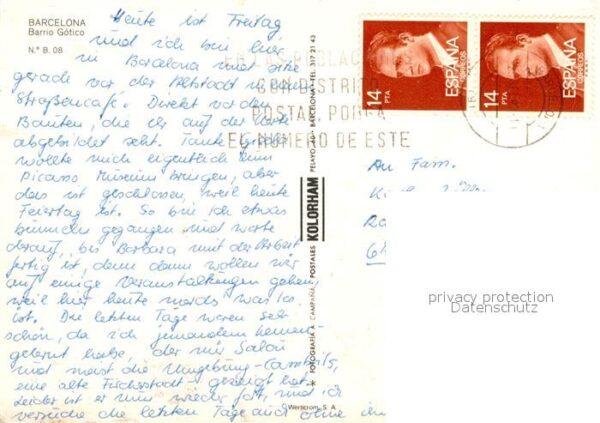 BARCELONA
Barrio Gótico
N.º B. 08
Heute ist Freitag
und ich bin hier
in Barcelona und sitze
gerade vor der Altstadt in einem
Straßencafé. Direkt vor den
Bauten, die ihr auf der Karte
abgebildet seht. Tante
wollte mich eigentlich zum
Picasso Museum bringen, aber
das ist geschlossen, weil heute
Feiertag ist. So bin ich etwas
bummeln gegangen und warte
darauf, bis Barbara mit der Arbeit
fertig ist, denn dann wollen wir
auf einige Veranstaltungen gehen,
weil hier heute nachts was los
ist. Die letzten Tage waren sehr
schön, da ich jemanden kennen-
gelernt habe, der mir Salou
und meist die Umgebung - Cambrils,
eine alte Fischerstadt - gezeigt hat.
Leider ist er nun wieder fort, und ich
versuche die letzten Tage auch ohne ihn
* FOTOGRAFIA A. CAMPAÑA POSTALES KOLORHAM PELAYO, 40 - BARCELONA - TEL. 317 21 43
Werocrom, S. A.
EN LAS POBLACIONES
CON DISTRITO
POSTAL PONGA
EL NUMERO DE ESTE
14
PTA
ESPAÑA
CORREOS
14
PTA
ESPAÑA
CORREOS
An Fam.
privacy protection
Datenschutz